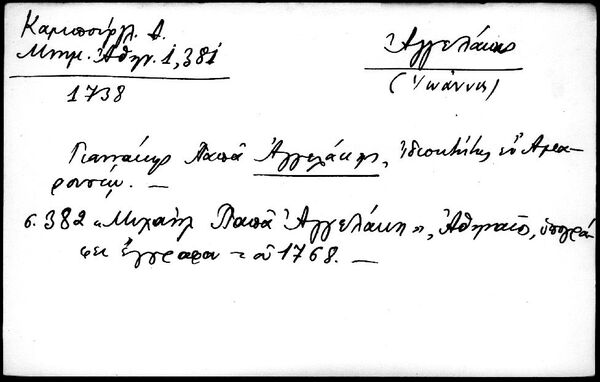 Καμπούργλ. Δ.
Μνημ. Ἀθην. 1, 381
1738
Ἀγγελάκης
(Ἰωάννης)
Γιαννάκης Παπᾶ Ἀγγελάκης, ἰδιοκτήτης ἐν Ἀμα-
ρουσίῳ. —
σ. 382 «Μιχαὴλ Παπᾶ Ἀγγελάκη», Ἀθηναῖος, ὑπογρά-
φει ἔγγραφα τοῦ 1768. —